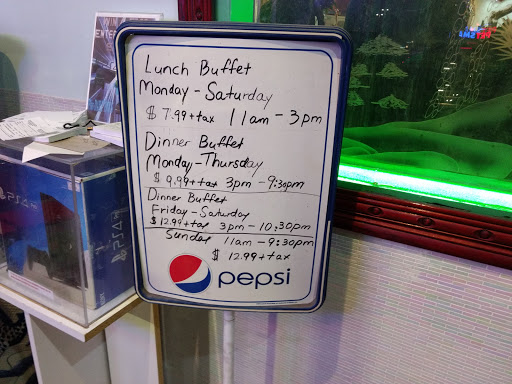 Lunch Buffet
Monday - Saturday
$ 7.99 + tax 11am - 3pm
Dinner Buffet
Monday - Thursday
$ 9.99 + tax 3pm - 9:30pm
Dinner Buffet
Friday - Saturday
$ 12.99 + tax 3pm - 10:30pm
Sunday 11am - 9:30pm
$ 12.99 + tax
pepsi
PS4